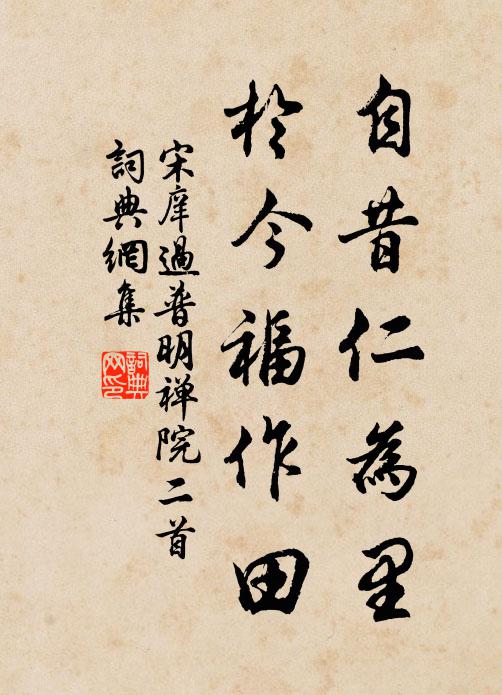 自昔仁為里
於今福作田
宋庠過普明禅院二首
詞典網集
詞典网印